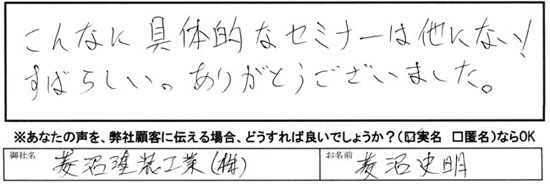 こんなに具体的なセミナーは他にない!
すばらしい。ありがとうございました。
※あなたの声を、弊社顧客に伝える場合、どうすれば良いでしょうか?(☑実名 □匿名)ならOK
御社名 菱沼塗装工業(株) お名前 菱沼史明